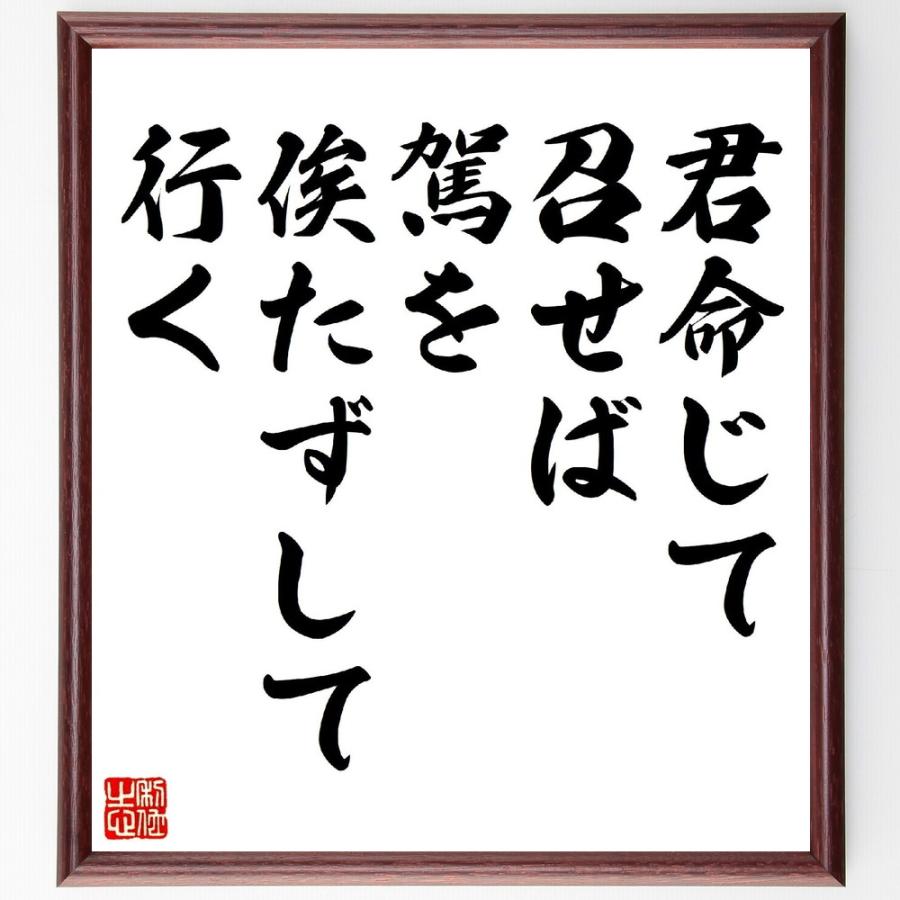 君命じて
召せば
駕を
俟たずして
行く